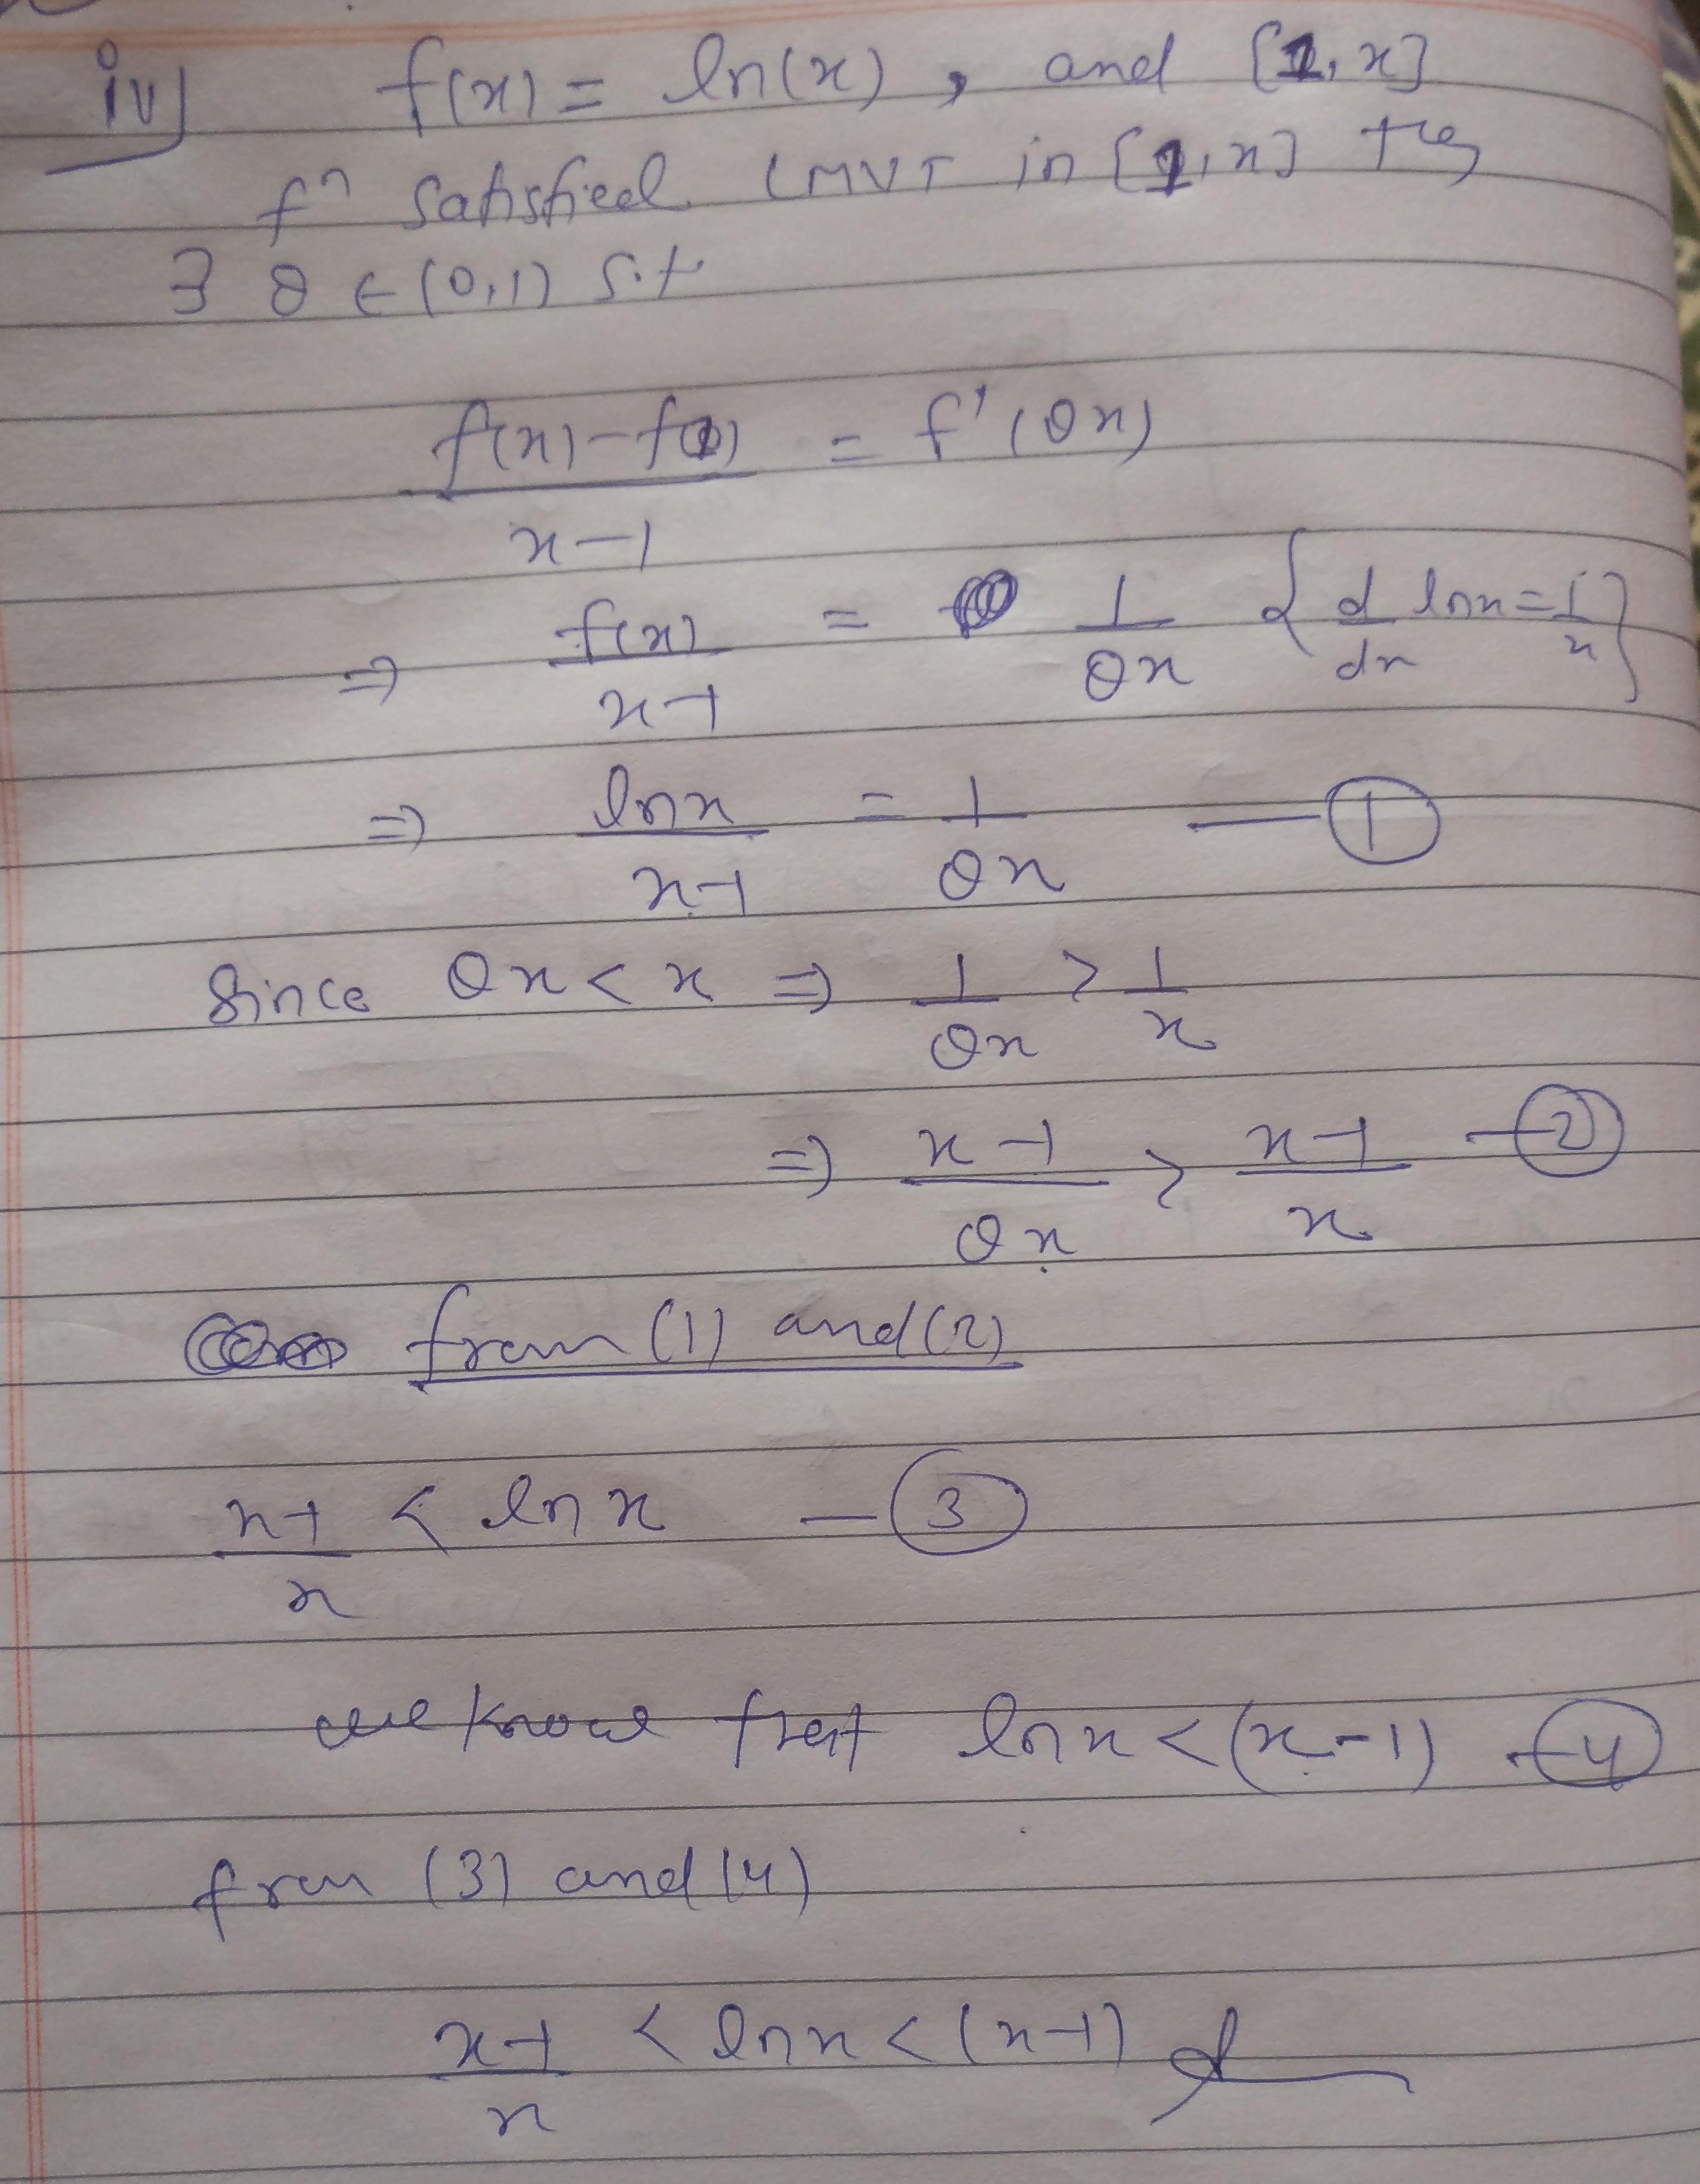 iv) f(x) = ln(x), and [1, x]
fⁿ satisfied LMVT in [1, x]
∃ θ ∈ (0,1) s.t
f(x) - f(1) / x-1 = f'(θx)
⇒ f(x) / x-1 = 1/θx { d/dx lnx = 1/x }
⇒ lnx / x-1 = 1/θx — ①
Since θx < x ⇒ 1/θx > 1/x
⇒ x-1/θx > x-1/x — ②
from (1) and (2)
x-1/x < ln x — ③
we know that lnx < (x-1) — ④
from (3) and (4)
x-1/x < lnx < (x-1)